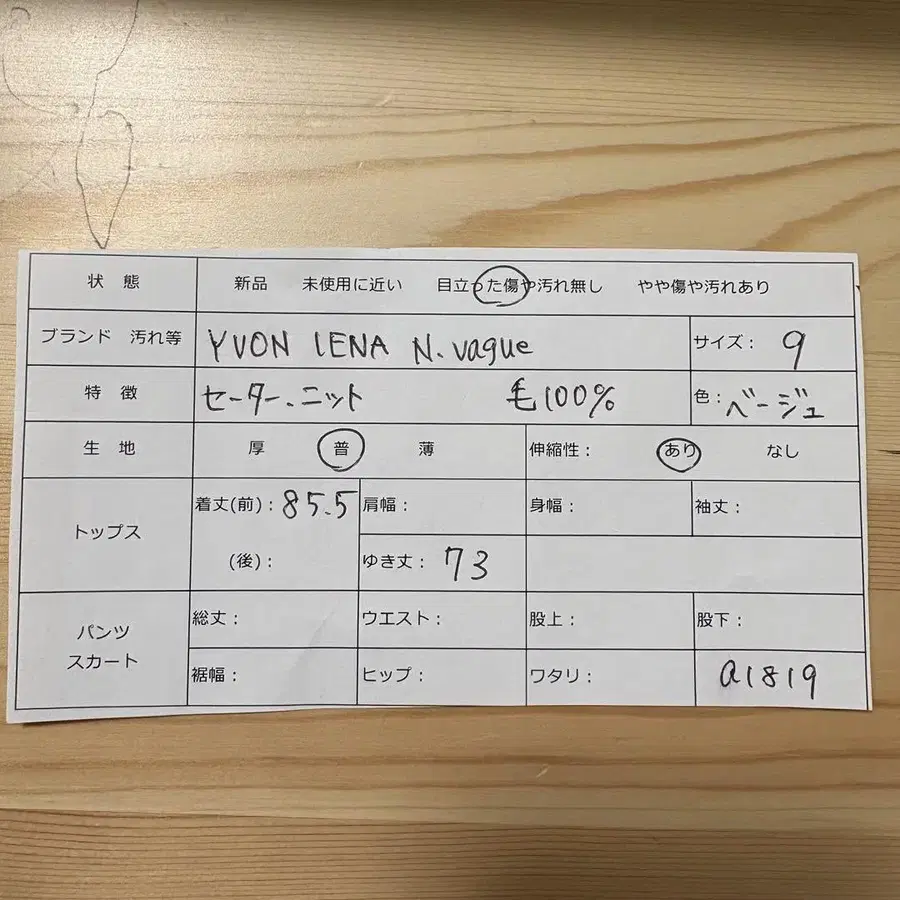 状 態 新品 未使用に近い 目立った傷や汚れ無し やや傷や汚れあり
ブランド 汚れ等 YVON LENA N.vague サイズ: 9
特 徴 セーター.ニット 毛100% 色: ベージュ
生 地 厚 普 薄 伸縮性: あり なし
トップス 着丈(前): 85.5 肩幅: 身幅: 袖丈:
(後): ゆき丈: 73
パンツ 総丈: ウエスト: 股上: 股下:
スカート 裾幅: ヒップ: ワタリ: a1819